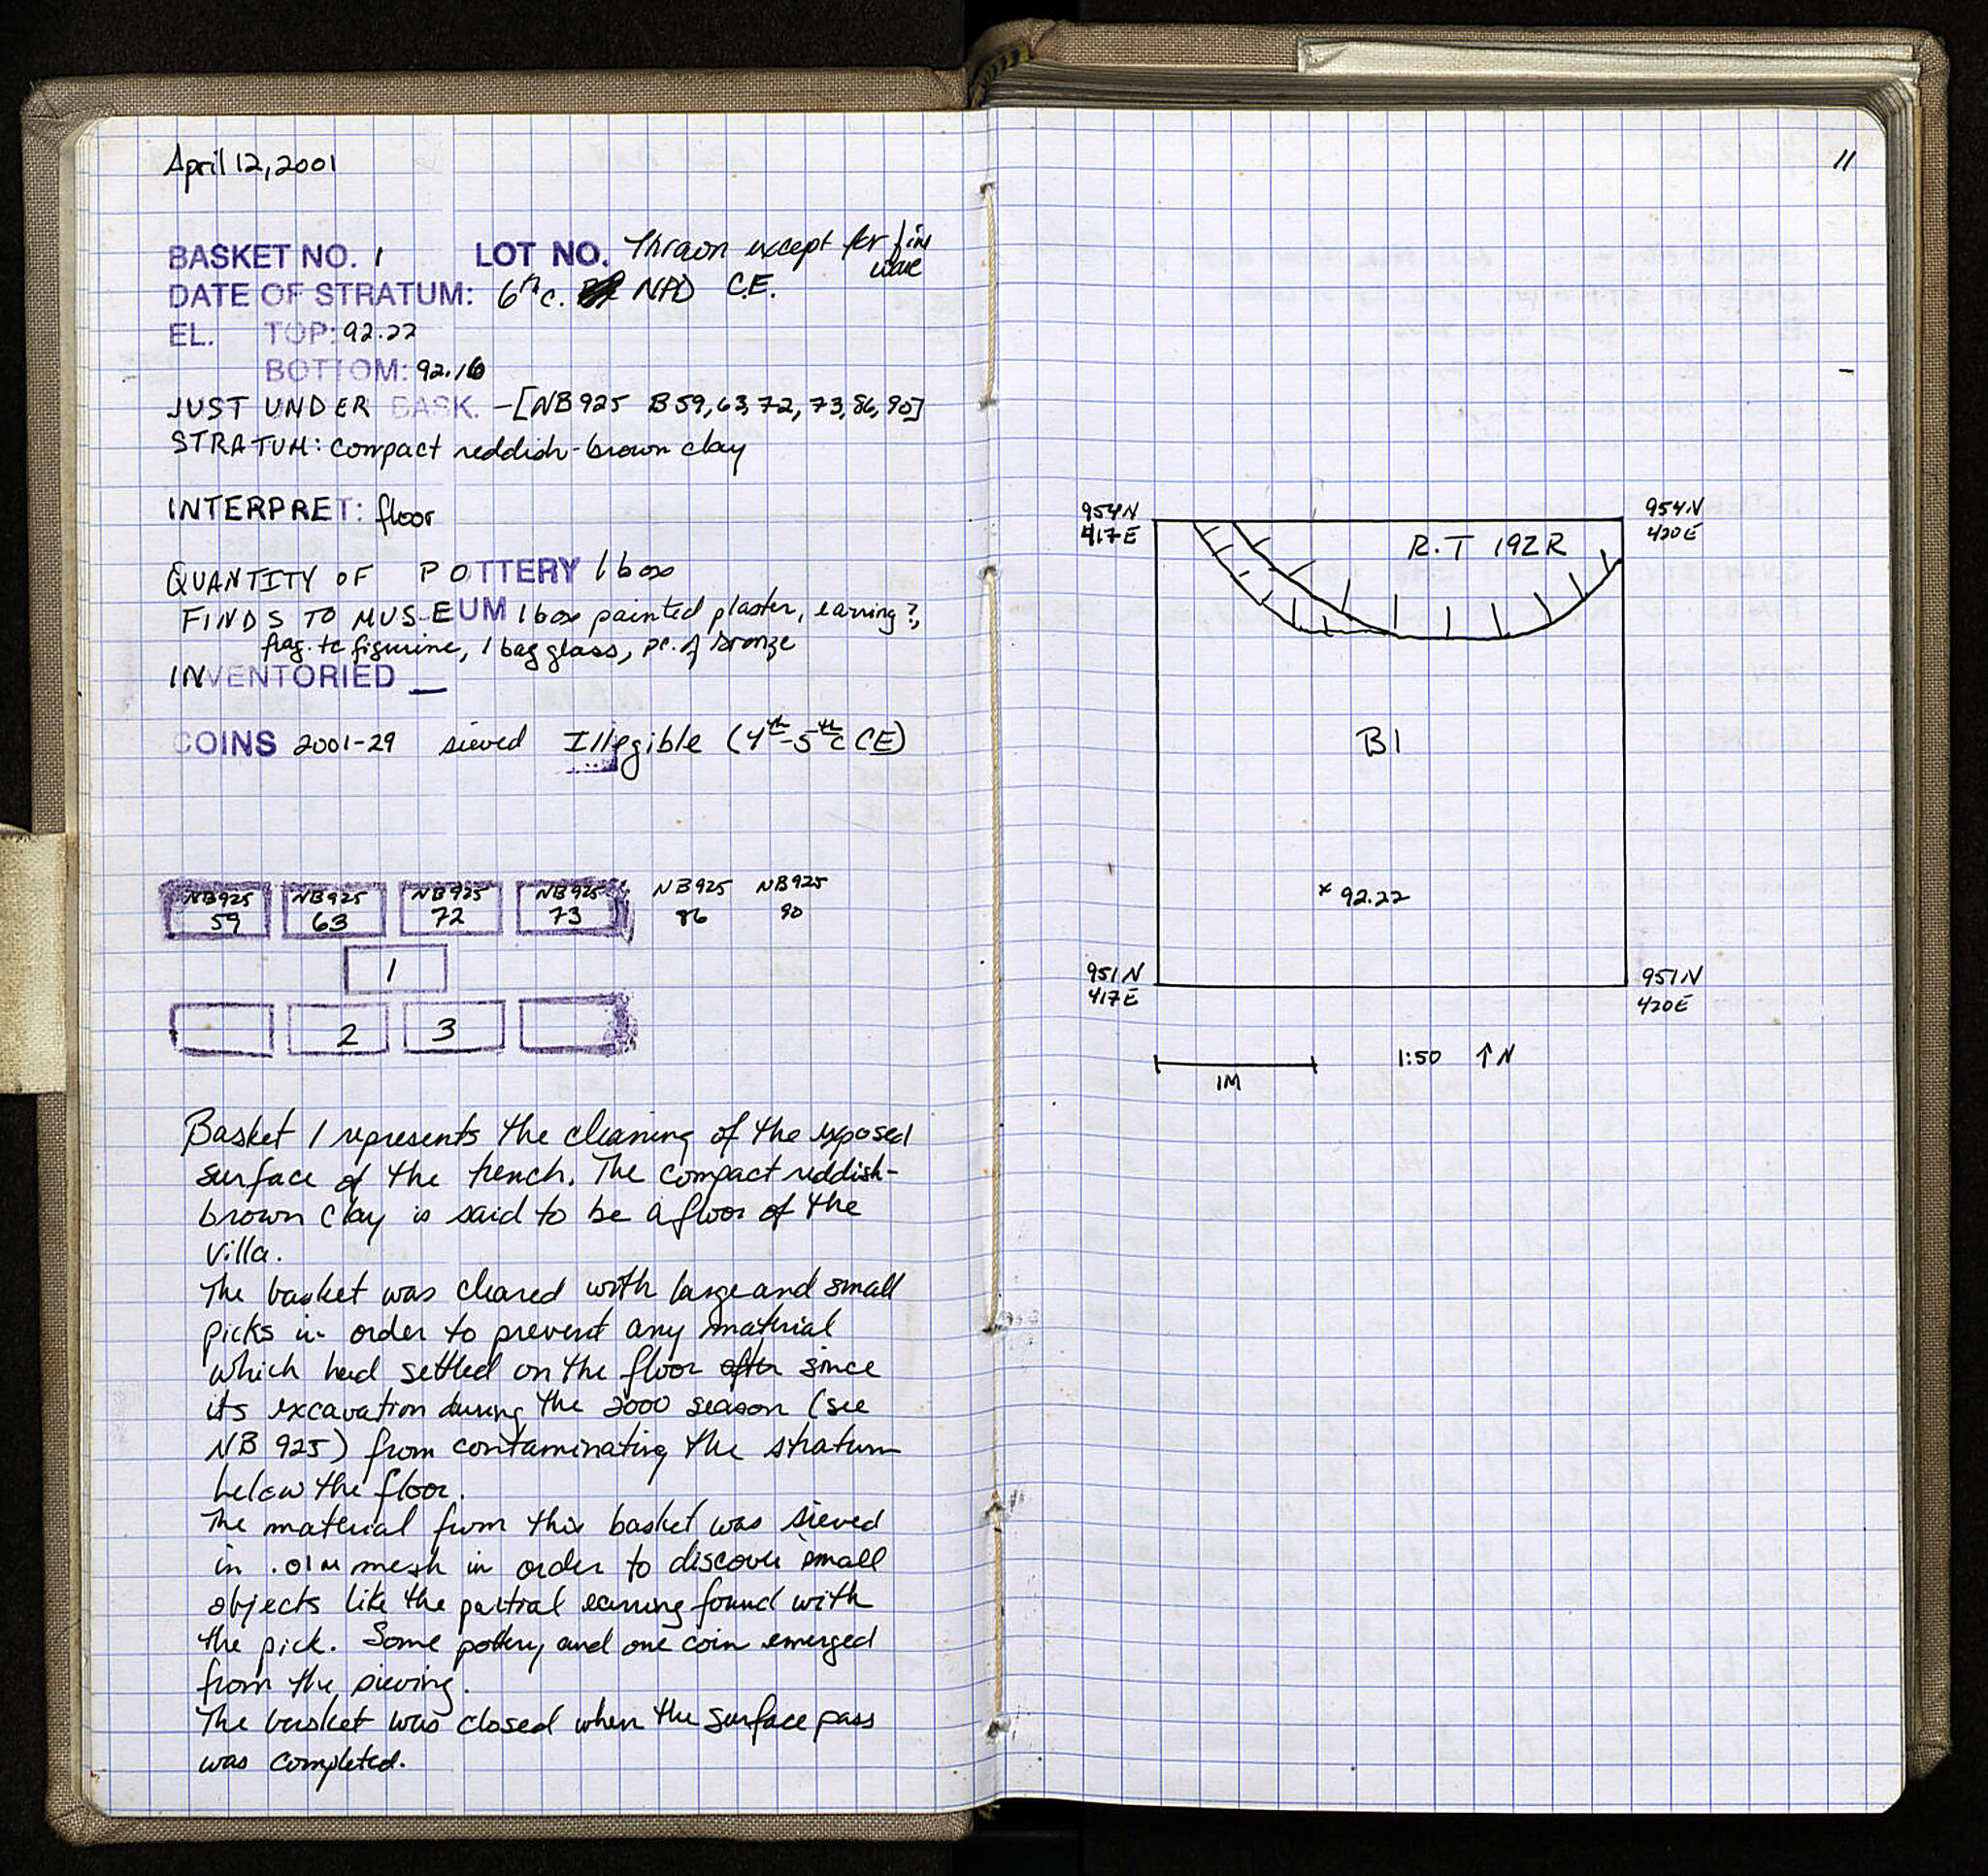 April 12, 2001
BASKET NO. 1 LOT NO. Thrown except for fine
ware
DATE OF STRATUM: 6th c. NPD C.E.
EL. TOP: 92.22
BOTTOM: 92.16
JUST UNDER BASK. -[NB925 B59, 63, 72, 73, 86, 90]
STRATUM: compact reddish-brown clay
INTERPRET: floor
QUANTITY OF POTTERY 1 box
FINDS TO MUSEUM 1 box painted plaster, earring?,
frag. tc figurine, 1 bag glass, pc. of bronze
INVENTORIED —
COINS 2001-29 sieved Illegible (4th-5th c CE)
NB925 NB925 NB925 NB925 NB925 NB925
59 63 72 73 86 90
1
2 3
Basket 1 represents the cleaning of the exposed
surface of the trench. The compact reddish-
brown clay is said to be a floor of the
villa.
The basket was cleared with large and small
picks in order to prevent any material
which had settled on the floor after since
its excavation during the 2000 season (see
NB 925) from contaminating the stratum
below the floor.
The material from this basket was sieved
in .01M mesh in order to discover small
objects like the partial earring found with
the pick. Some pottery and one coin emerged
from the sieving.
The basket was closed when the surface pass
was completed.
11
954N
417E
954N
420E
R.T 192R
B1
x 92.22
951N
417E
951N
420E
1M
1:50 ↑N